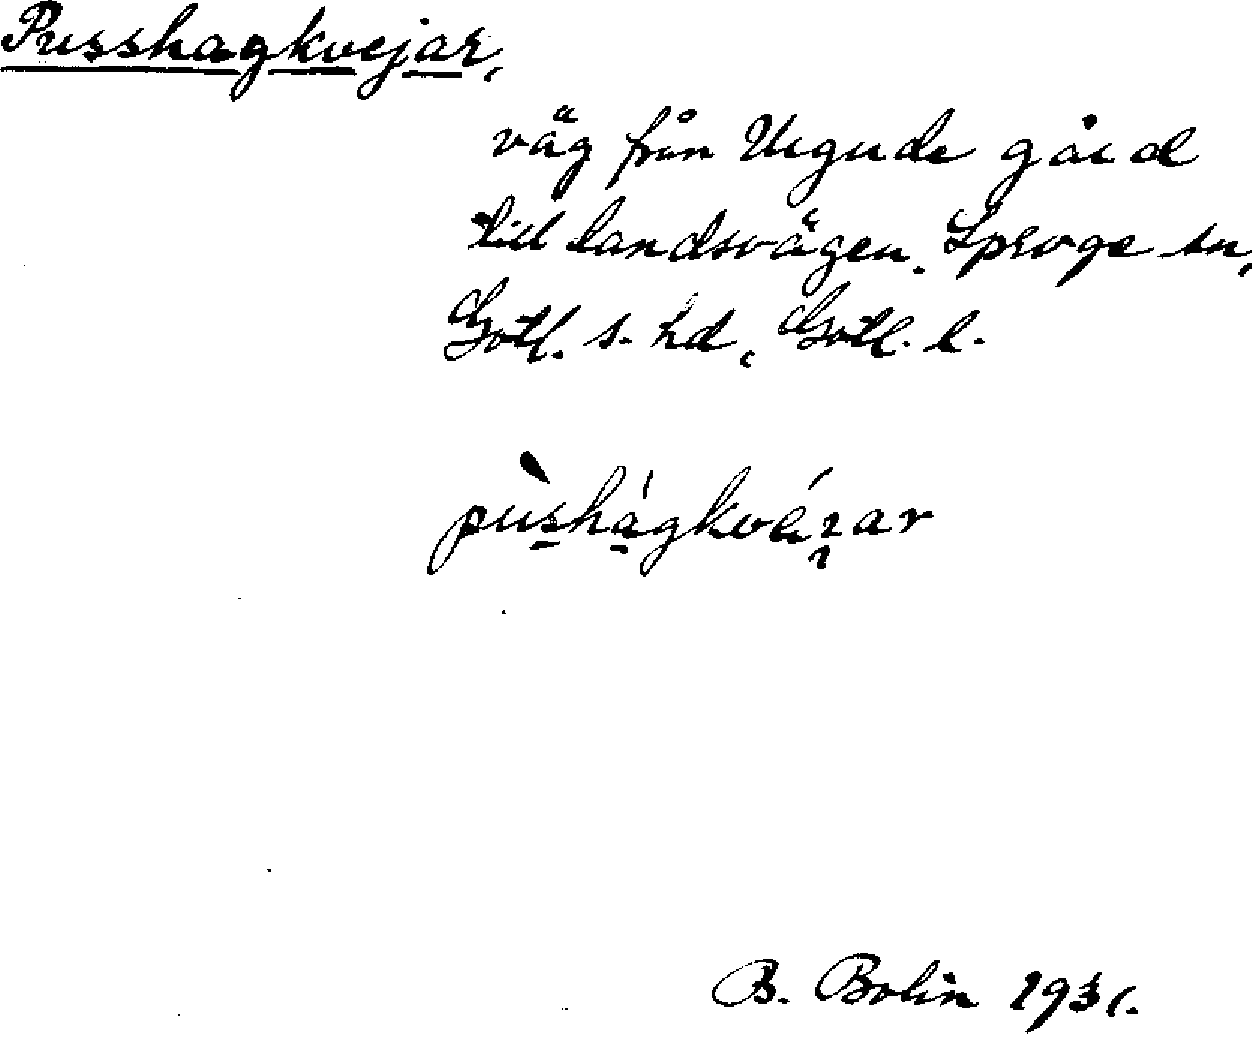 Pusshagkvejar,
väg från Urgude gård
till landsvägen. Sproge sn,
Gotl. s. hd, Gotl. l.
pùshágkvéɪ̯ar
B. Bolin 1931.